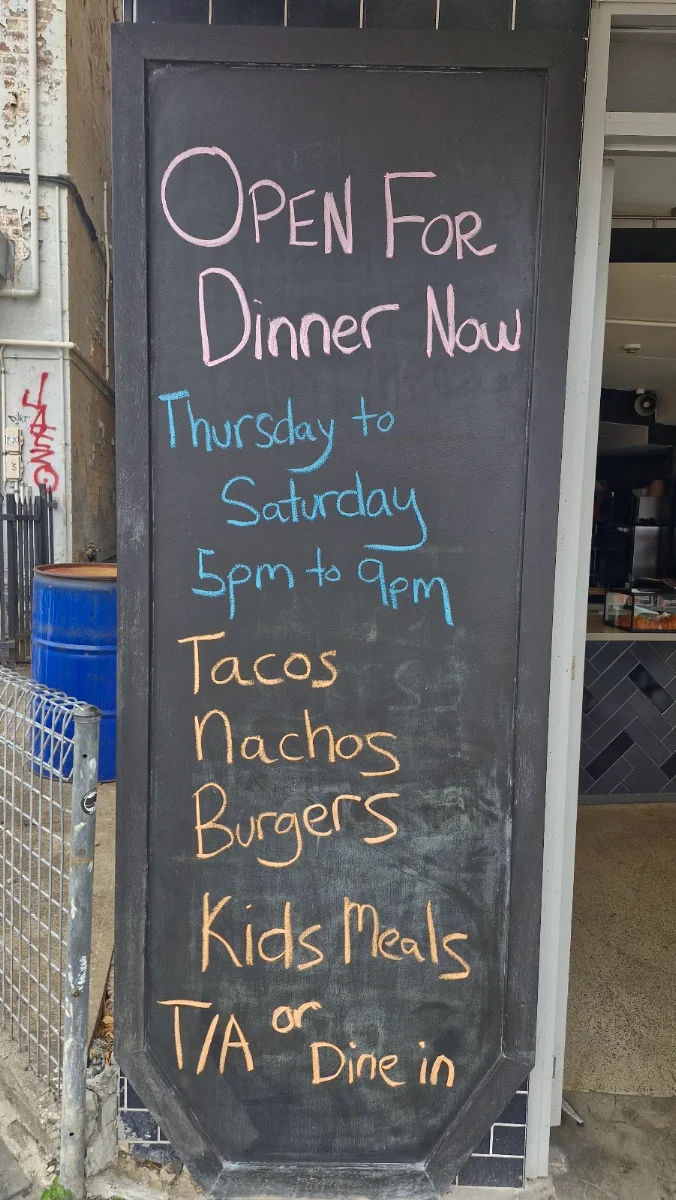 OPEN FOR
Dinner Now
Thursday to
Saturday
5pm to 9pm
Tacos
Nachos
Burgers
Kids Meals
T/A or
Dine in